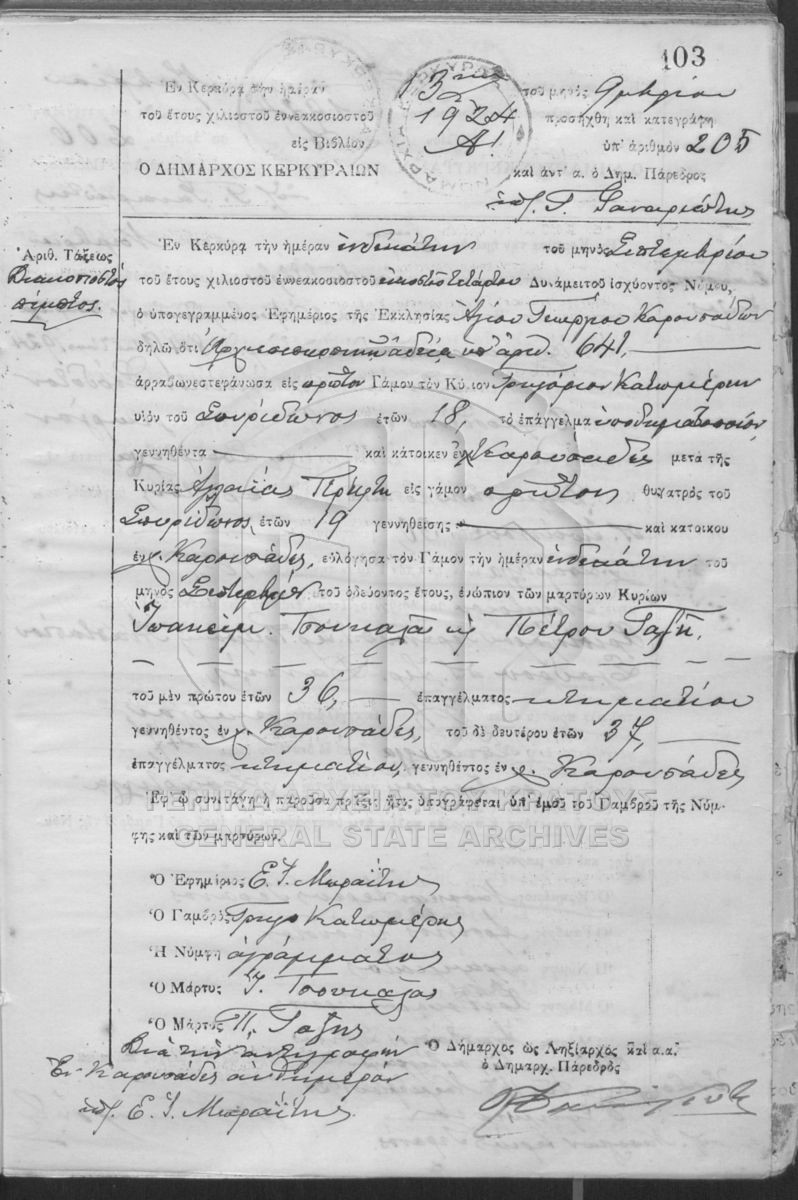 103
Ἐν Κερκύρᾳ τὴν ἡμέραν 13 τοῦ μηνὸς
τοῦ ἔτους χιλιοστοῦ ἐννεακοσιοστοῦ 1924 προσήχθη καὶ κατεγράφη
εἰς Βιβλίον Α! ὑπ' ἀριθμὸν 205
Ο ΔΗΜΑΡΧΟΣ ΚΕΡΚΥΡΑΙΩΝ καὶ ἀντ' α. ὁ Δημ. Πάρεδρος
Ἀριθ. Τάξεως
Διακοσιοστὸς
πέμπτος.
Ἐν Κερκύρᾳ τὴν ἡμέραν ἑνδεκάτην τοῦ μηνὸς Σεπτεμβρίου
τοῦ ἔτους χιλιοστοῦ ἐννεακοσιοστοῦ εἰκοστοῦ τετάρτου Δυνάμει τοῦ ἰσχύοντος Νόμου,
ὁ ὑπογεγραμμένος Ἐφημέριος τῆς Ἐκκλησίας Ἁγίου Γεωργίου Καρουσάδων
δηλῶ ὅτι Ἀρχιεπισκοπικῇ ἀδείᾳ ὑπ' ἀριθ. 641,
ἀρραβωνεστεφάνωσα εἰς πρῶτον Γάμον τὸν Κύριον Γρηγόριον Κατωμέρην
υἱὸν τοῦ Σπυρίδωνος ἐτῶν 18, τὸ ἐπάγγελμα ὑποδηματοποιὸν,
γεννηθέντα καὶ κάτοικον ἐν Καρουσάδες μετὰ τῆς
Κυρίας εἰς γάμον πρῶτον θυγατρὸς τοῦ
Σπυρίδωνος ἐτῶν 19 γεννηθείσης καὶ κατοίκου
ἐν χ. Καρουσάδες, εὐλόγησα τὸν Γάμον τὴν ἡμέραν ἑνδεκάτην τοῦ
μηνὸς τοῦ ὁδεύοντος ἔτους, ἐνώπιον τῶν μαρτύρων Κυρίων
Ἰωακεὶμ Τσουκαλᾶ κ Πέτρου Γαζῆ.
τοῦ μὲν πρώτου ἐτῶν 36, ἐπαγγέλματος κτηματίου
γεννηθέντος ἐν χ. Καρουσάδες, τοῦ δὲ δευτέρου ἐτῶν 37,
ἐπαγγέλματος κτηματίου, γεννηθέντος ἐν χ. Καρουσάδες
Ἐφ' ᾧ συνετάγη ἡ παροῦσα πρᾶξις ἥτις ὑπογράφεται ὑπ' ἐμοῦ τοῦ Γαμβροῦ τῆς Νύμ-
φης καὶ τῶν μαρτύρων.
ΓΕΝΙΚΑ ΑΡΧΕΙΑ ΤΟΥ ΚΡΑΤΟΥΣ
GENERAL STATE ARCHIVES
Ὁ Ἐφημέριος Ε. Ι. Μωραΐτης
Ὁ Γαμβρὸς Γρηγο Κατωμέρης
Ἡ Νύμφη ἀγράμματος
Ὁ Μάρτυς Ἰ. Τσουκαλᾶς
Ὁ Μάρτυς Π. Γαζῆς
Διὰ τὴν ἀντιγραφὴν
Ἐν Καρουσάδες αὐθημερόν
Ε. Ι. Μωραΐτης.
Ὁ Δήμαρχος ὡς Ληξίαρχος καὶ α.α.
ὁ Δημαρχ. Πάρεδρὸς